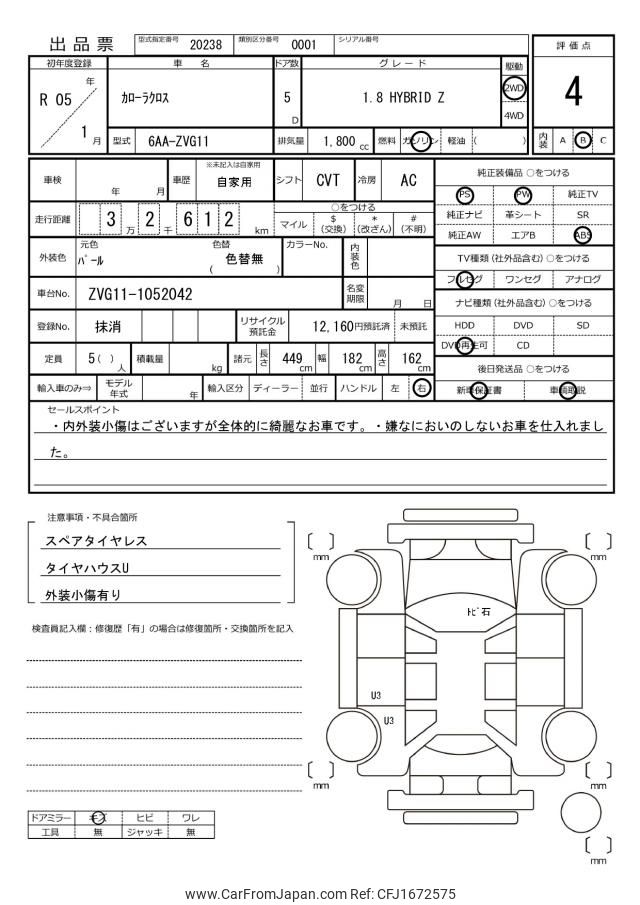 出品票 型式指定番号 20238 類別区分番号 0001 シリアル番号
評価点
4
内装 A B C
初年度登録 車名 ドア数 グレード 駆動
R 05 年 1 月
カローラクロス 5 D 1.8 HYBRID Z 2WD
4WD
型式 6AA-ZVG11 排気量 1,800 cc 燃料 ガソリン 軽油 ( )
車検 年 月 車歴 ※未記入は自家用 自家用 シフト CVT 冷房 AC
走行距離 3 万 2 千 6 1 2 km
○をつける
マイル $(交換) *(改ざん) #(不明)
外装色 元色 パール 色替 ( 色替無 ) カラーNo. 内装色
車台No. ZVG11-1052042 名変期限 月 日
登録No. 抹消 リサイクル預託金 12,160円預託済 未預託
定員 5 ( ) 人 積載量 kg 諸元 長さ 449 cm 幅 182 cm 高さ 162 cm
輸入車のみ⇒ モデル年式 年 輸入区分 ディーラー 並行 ハンドル 左 右
純正装備品 ○をつける
PS PW 純正TV
純正ナビ 革シート SR
純正AW エアB ABS
TV種類 (社外品含む) ○をつける
フルセグ ワンセグ アナログ
ナビ種類 (社外品含む) ○をつける
HDD DVD SD
DVD再生可 CD
後日発送品 ○をつける
新車保証書 車輌取説
セールスポイント
・内外装小傷はございますが全体的に綺麗なお車です。・嫌なにおいのしないお車を仕入れまし
た。
注意事項・不具合箇所
スペアタイヤレス
タイヤハウスU
外装小傷有り
検査員記入欄：修復歴「有」の場合は修復箇所・交換箇所を記入
ドアミラー キズ ヒビ ワレ
工具 無 ジャッキ 無
mm
mm
トビ石
U3
U3
mm
mm
mm
www.CarFromJapan.com Ref: CFJ1672575